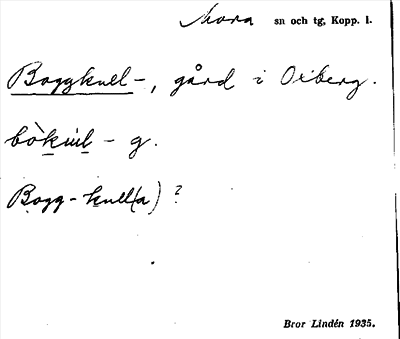 Mora sn och tg, Kopp. l.
Boggkull-, gård i Oxberg.
bòkùl - g.
Bogg-kull(a)?
Bror Lindén 1935.